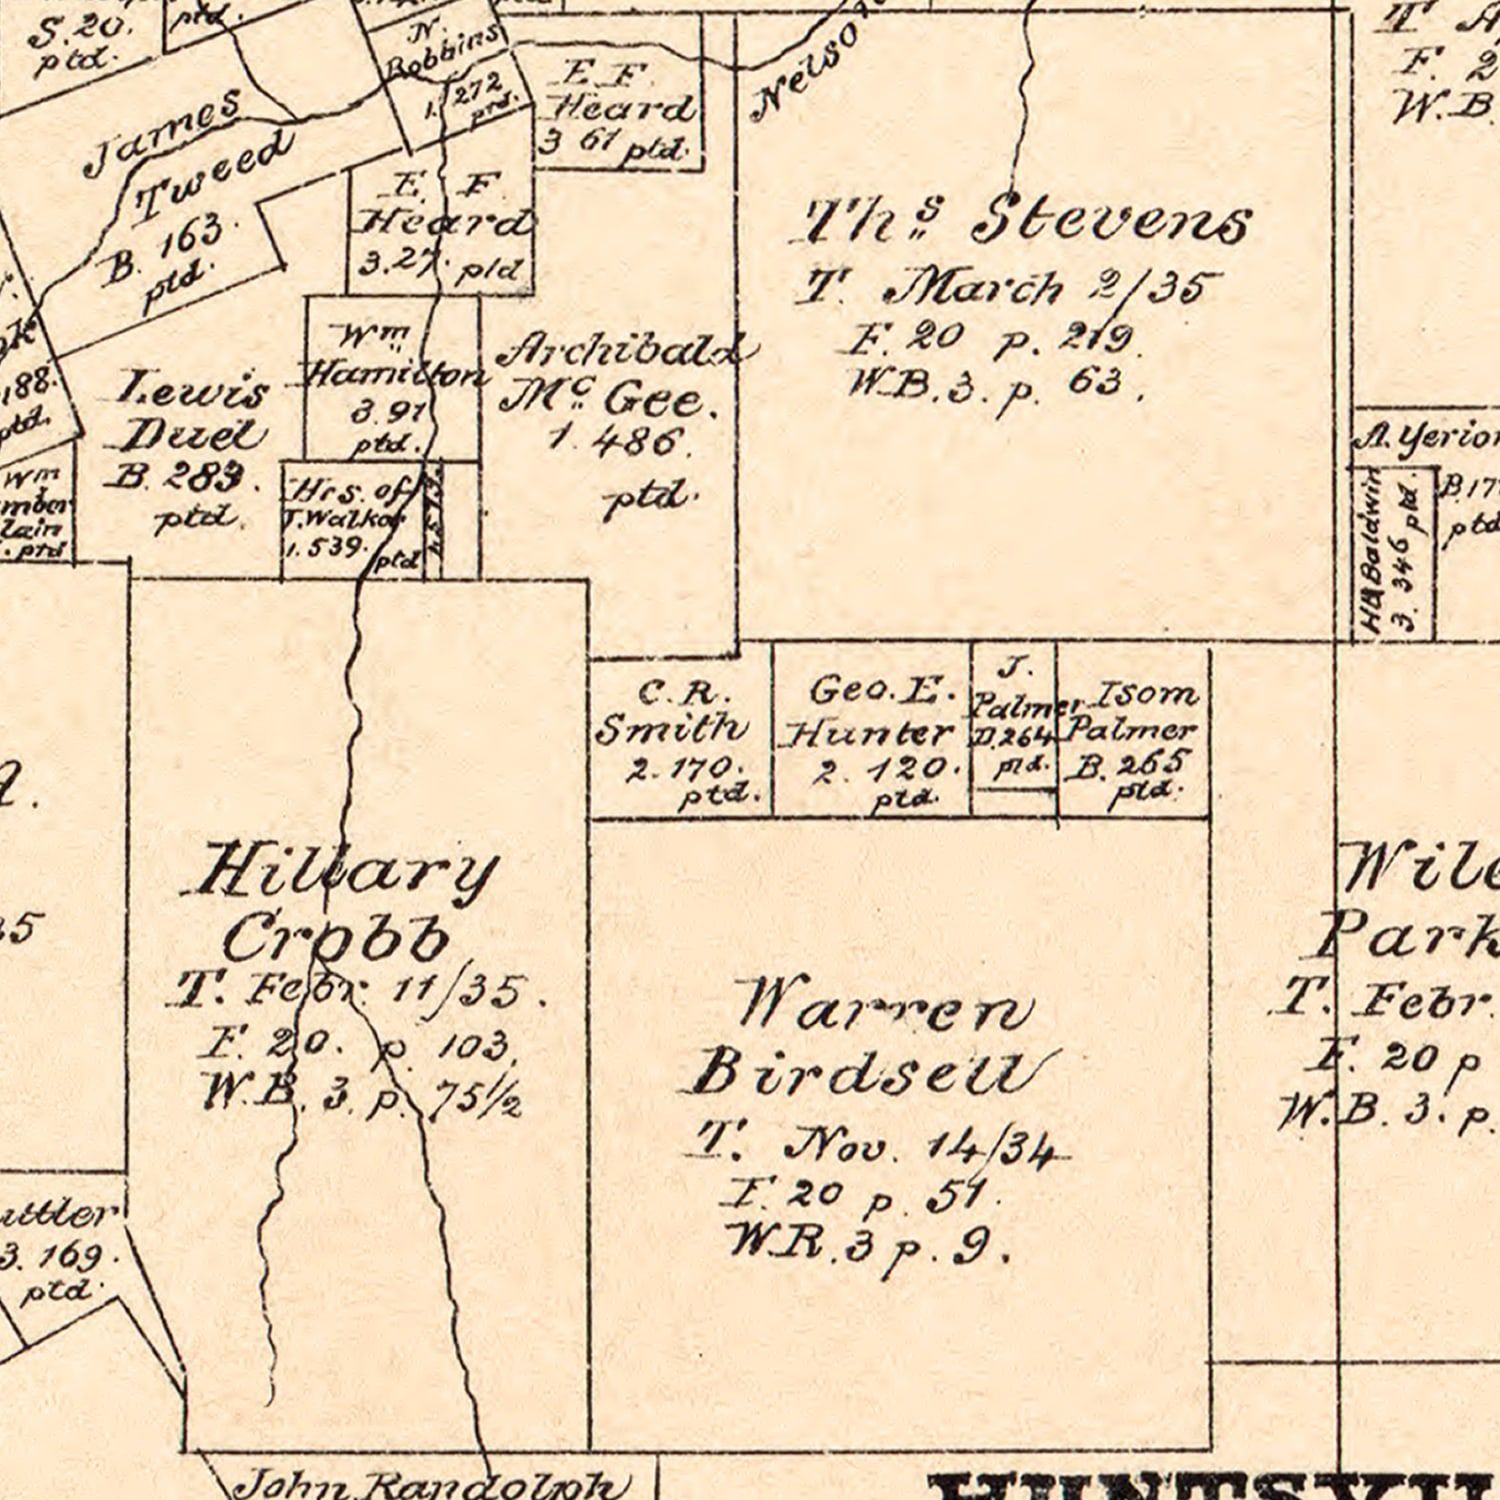 S. 20.
ptd.
ptd.
N.
Robbins
1. 272
ptd.
E F.
Heard
3 61 ptd.
Nelso
T
F. 2
W.B.
James
Tweed
B. 163.
ptd.
E. F
Heard
3.27. ptd
Ths Stevens
T. March 2/35
F. 20 p. 219.
W.B. 3. p. 63.
188.
ptd.
Lewis
Duel
B. 283.
ptd.
Wm
Hamilton
3.91
ptd.
Archibald
Mc Gee.
1. 486.
ptd.
A. Yerion
B.17
ptd
H A Baldwin
3. 346 ptd.
Wm
mber
lain
. ptd
Hrs. of
T. Walker
1. 539.
ptd
C. R.
Smith
2. 170.
ptd.
Geo. E.
Hunter
2. 120.
ptd.
J.
Palmer
D. 264
ptd.
Isom
Palmer
B. 265
ptd.
35
Hillary
Crobb
T. Febr. 11/35.
F. 20. p. 103.
W.B. 3. p. 75½
Warren
Birdsell
T. Nov. 14/34
F. 20 p. 51.
W.R. 3 p. 9.
Wile
Park
T. Febr.
F. 20 p
W.B. 3. p.
uttler
3. 169.
ptd.
John Randolph
HUNTSVIL